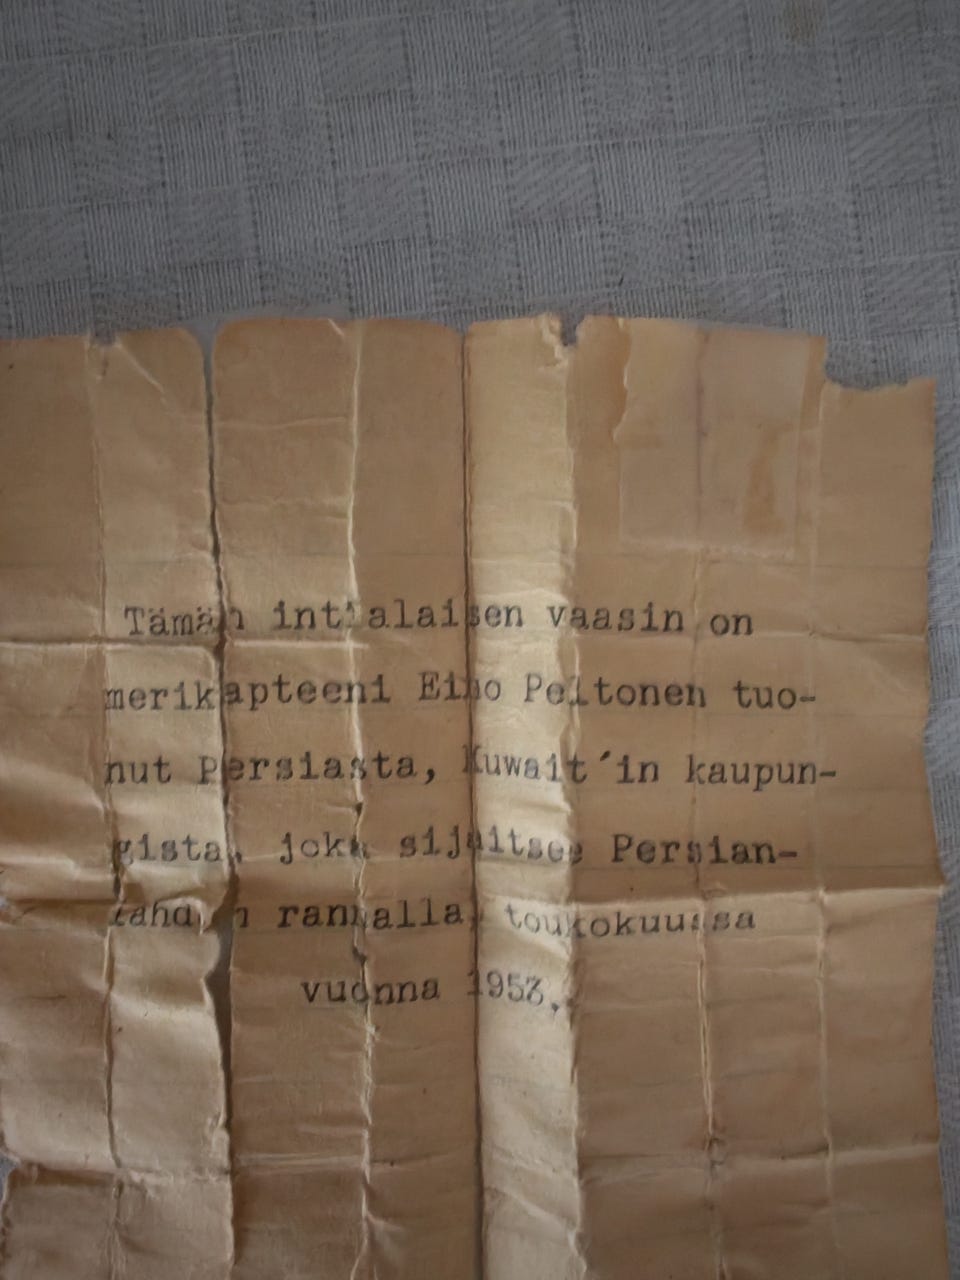 Tämän intialaisen vaasin on
merikapteeni Eino Peltonen tuo-
nut Persiasta, Kuwait´in kaupun-
gista, joka sijaitsee Persian-
lahden rannalla, toukokuussa
vuonna 1953.